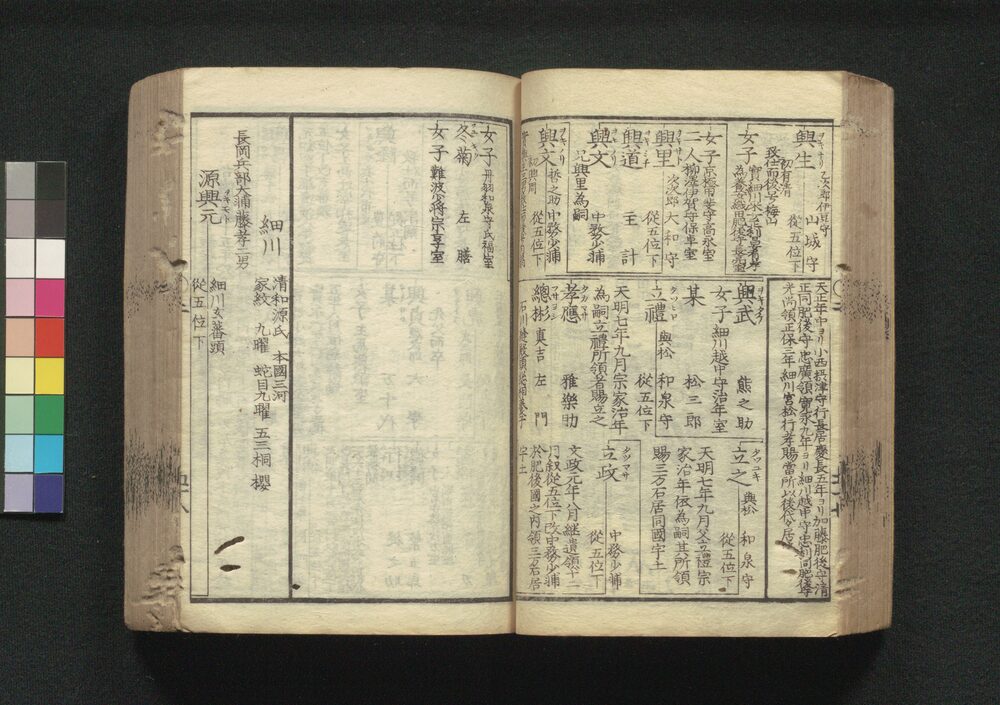 興生
山城守
從五位下
初有清
致仕而後号梅山
女子
女子
二人
興里
大和守
從五位下
興道
主計
興文
中務少輔
興里為嗣
興文
哲之助
中務少輔
從五位下
初興周
天正年中ヨリ小西摂津守行長居慶長五年ヨリ加藤肥後守清
正同肥後守忠廣領寛永九年ヨリ細川越中守忠利同肥後守
光尚領正保三年細川宮松行孝賜當所以後代々居
興武
熊之助
女子
細川越中守治年室
某
松三郎
立禮
タツヒロ
與松
和泉守
從五位下
天明七年九月宗家治年
為嗣立禮所領者賜立之
孝應
タカマサ
雅樂助
總彬
真吉
左門
立之
タツユキ
與松
和泉守
從五位下
天明七年九月父立禮宗
家治年依為嗣其所領
賜三万石居同國宇土
立政
タツマサ
中務少輔
從五位下
文政元年八月継遺領十二
月叙從五位下改中務少輔
於肥後國之内領三万石居
宇土
女子
丹羽和泉守氏福室
冬菊
左膳
女子
難波少将宗享室
細川
清和源氏
本國三河
家紋
九曜
蛇目九曜
五三桐
櫻
長岡兵部大輔藤孝二男
源興元
ヲキモト
細川玄蕃頭
從五位下